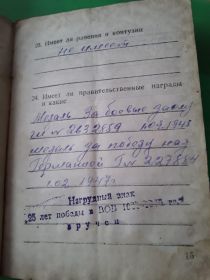 23. Имеет ли ранения и контузии
Не имеет
24. Имеет ли правительственные награды
и какие
Медаль За боевые заслу
ги № 2632859 1948
медаль за победу над
Германией
1947
Нагрудный знак
25 лет победы в ВОВ
вручен
15